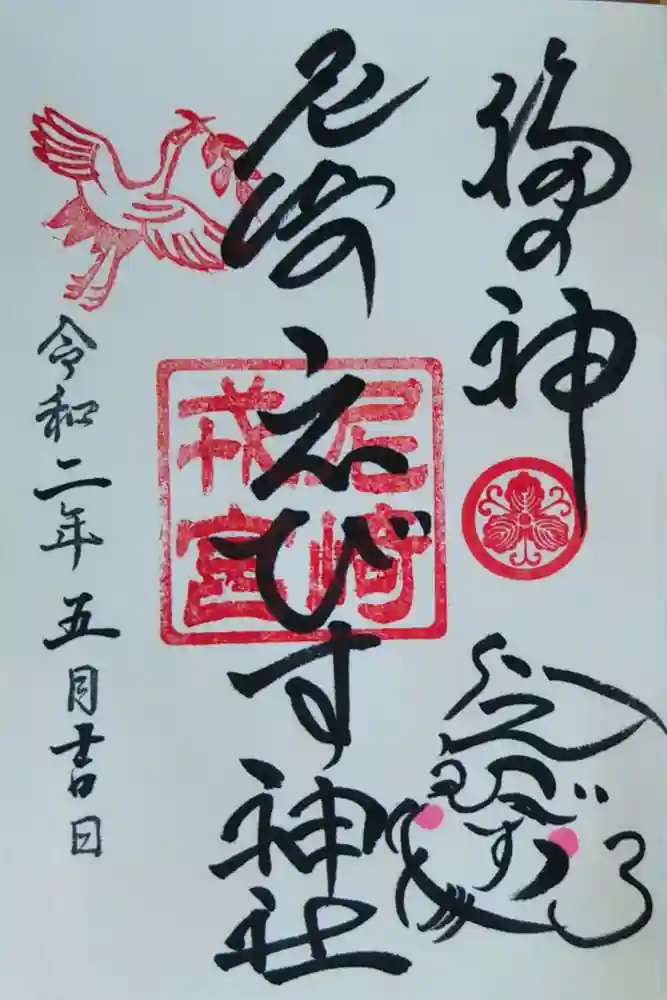 福の神
えびす
尼崎えびす神社
尼崎
戎宮
令和二年五月吉日